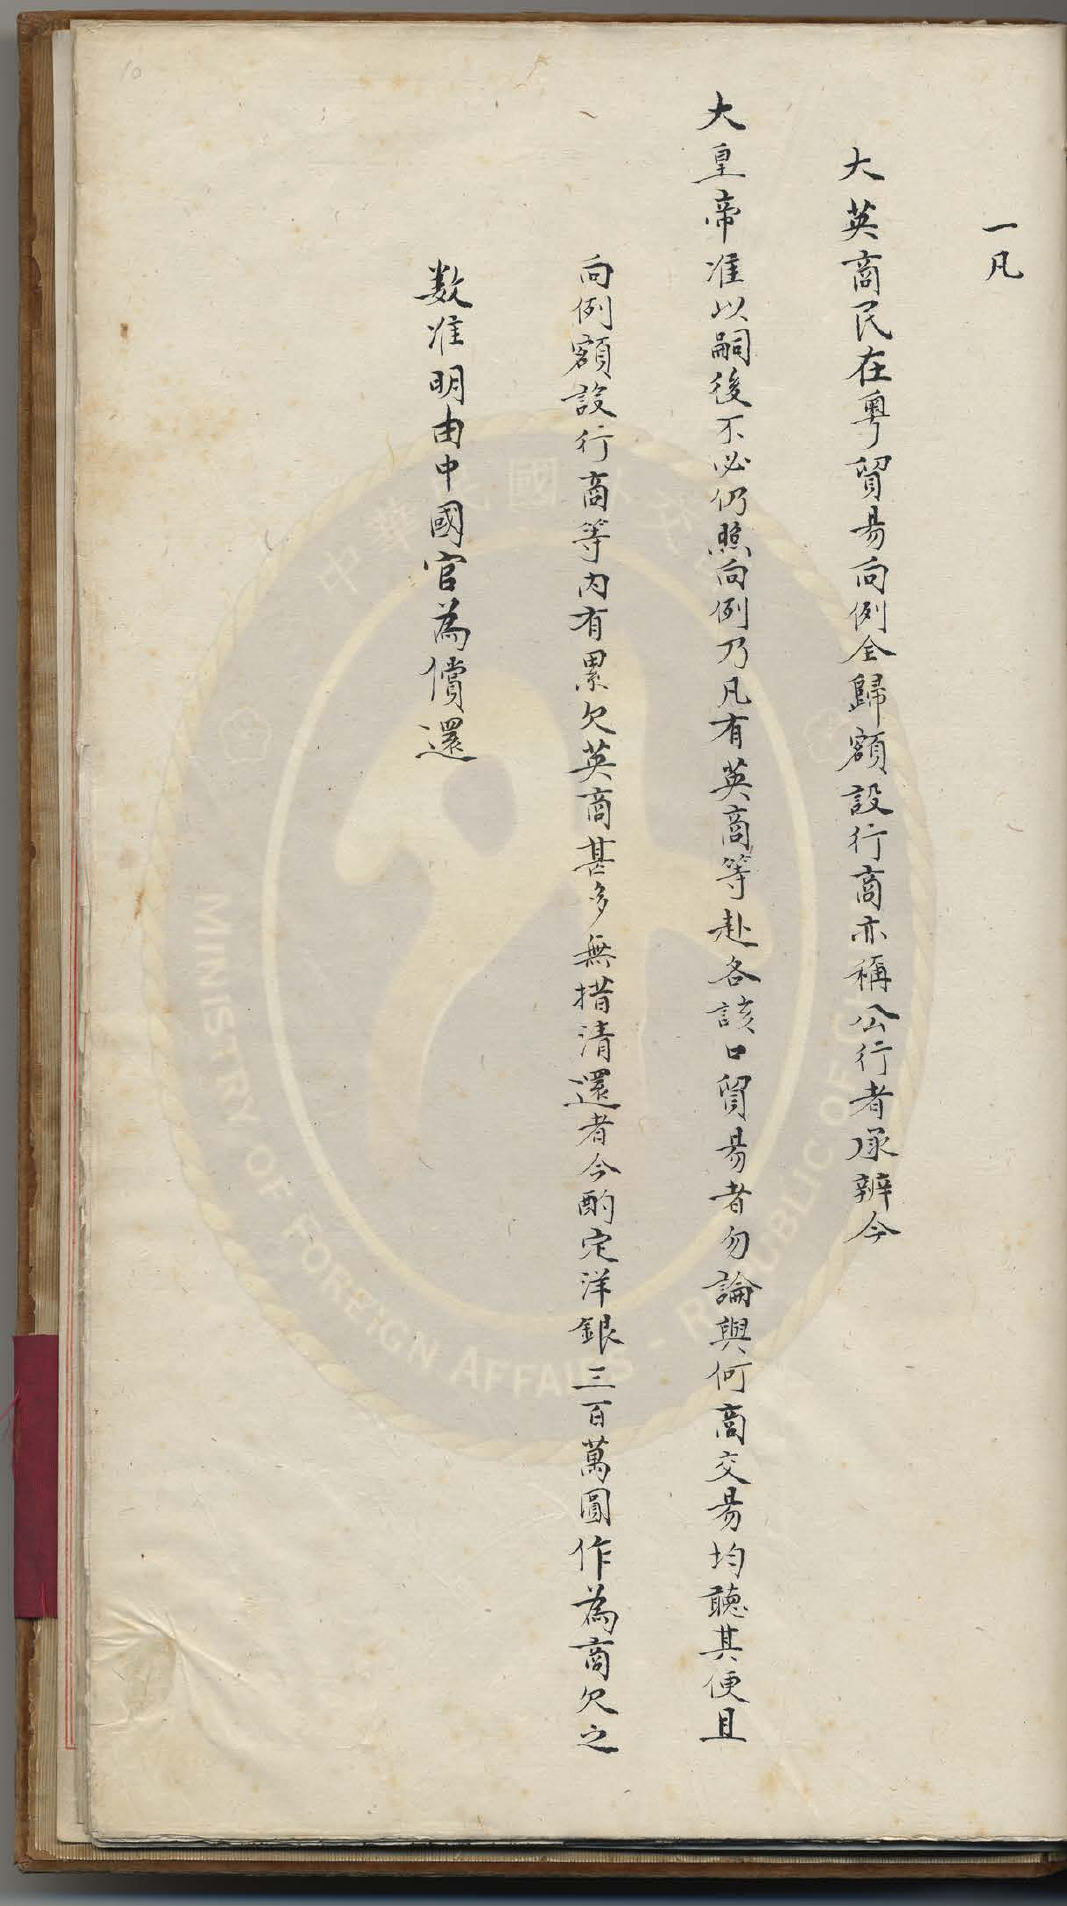 一凡
大英商民在粵貿易向例全歸額設行商亦稱公行者承辦今
大皇帝准以嗣後不必仍照向例乃凡有英商等赴各該口貿易者勿論與何商交易均聽其便且
向例額設行商等內有累欠英商甚多無措清還者今酌定洋銀三百萬圓作為商欠之
数准明由中國官為償還
10
MINISTRY OF FOREIGN AFFAIRS - REPUBLIC OF